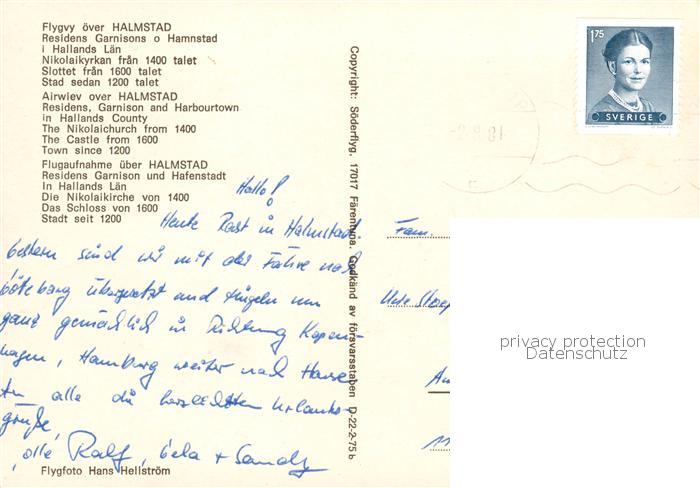 Flygvy över HALMSTAD
Residens Garnisons o Hamnstad
i Hallands Län
Nikolaikyrkan från 1400 talet
Slottet från 1600 talet
Stad sedan 1200 talet
Airwiev over HALMSTAD
Residens, Garnison and Harbourtown
in Hallands County
The Nikolaichurch from 1400
The Castle from 1600
Town since 1200
Flugaufnahme über HALMSTAD
Residens Garnison und Hafenstadt
In Hallands Län
Die Nikolaikirche von 1400
Das Schloss von 1600
Stadt seit 1200
Hallo!
Heute Rast in Halmstad
Gestern sind wir mit der Fähre nach
Göteborg übergesetzt und nun
ganz gemächlich in Richtung Kopen-
hagen, Hamburg weiter nach Hause
alle die herzlichsten Urlaubs-
grüße,
Ralf, Gela + Sandy
Flygfoto Hans Hellström
Copyright: Söderflyg, 17017 Färentuna. Godkänd av försvarsstaben D-22-2-75 b
1.75
SVERIGE
81
Fam.
privacy protection
Datenschutz